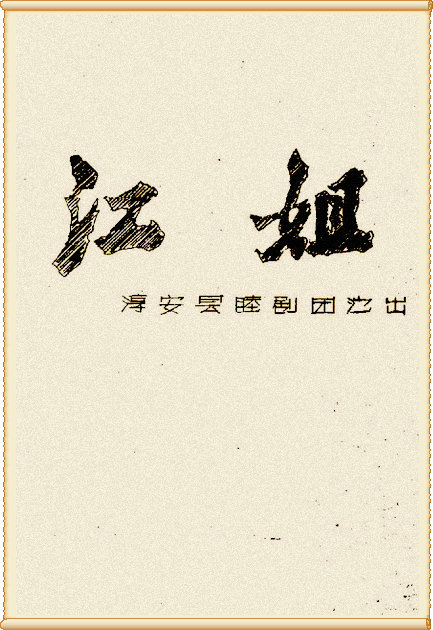 江姐
淳安县睦剧团演出